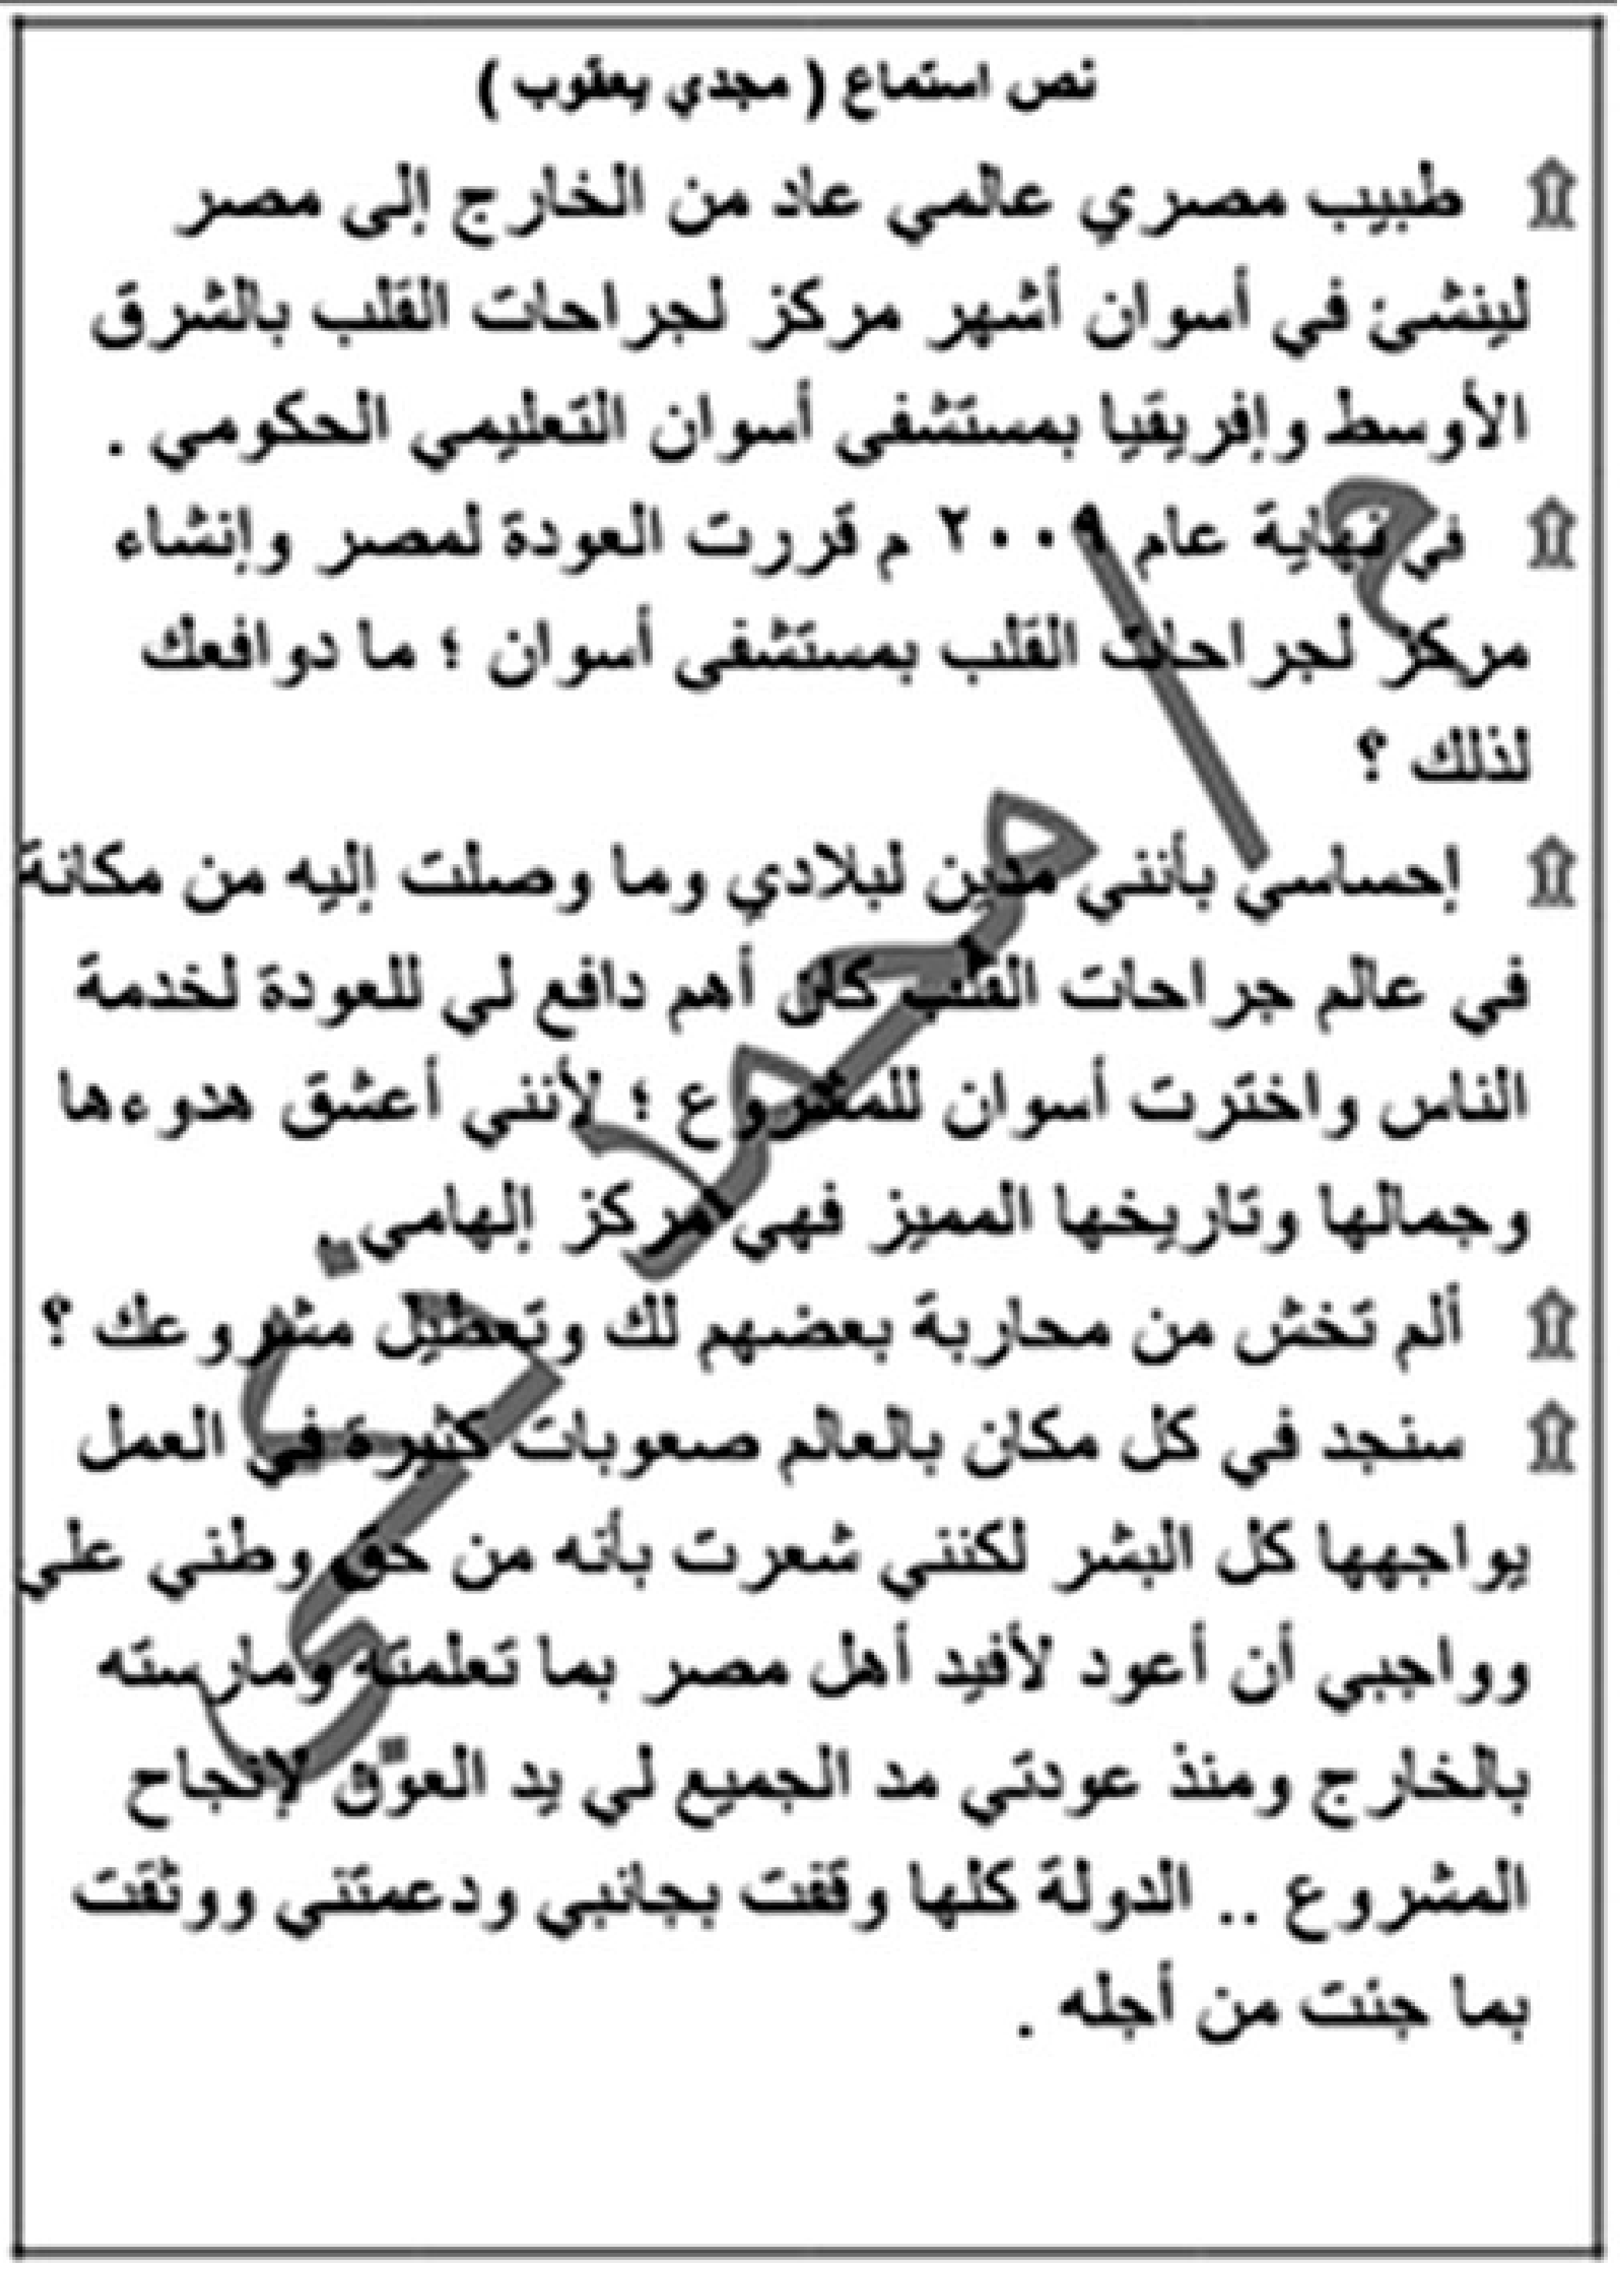 نص استماع ( مجدي يعقوب )
طبيب مصري عالمي عاد من الخارج إلى مصر
لينشئ في أسوان أشهر مركز لجراحات القلب بالشرق
الأوسط وإفريقيا بمستشفى أسوان التعليمي الحكومي .
في نهاية عام ٢٠٠٩ م قررت العودة لمصر وإنشاء
مركز لجراحات القلب بمستشفى أسوان ؛ ما دوافعك
لذلك ؟
إحساسي بأنني مدين لبلادي وما وصلت إليه من مكانة
في عالم جراحات القلب كان أهم دافع لي للعودة لخدمة
الناس واخترت أسوان للمشروع ؛ لأنني أعشق هدوءها
وجمالها وتاريخها المميز فهي مركز إلهامي
ألم تخش من محاربة بعضهم لك وتعطيل مشروعك ؟
سنجد في كل مكان بالعالم صعوبات كثيرة في العمل
يواجهها كل البشر لكنني شعرت بأنه من حق وطني علي
وواجبي أن أعود لأفيد أهل مصر بما تعلمته ومارسته
بالخارج ومنذ عودتي مد الجميع لي يد العون لإنجاح
المشروع .. الدولة كلها وقفت بجانبي ودعمتني ووثقت
بما جئت من أجله .